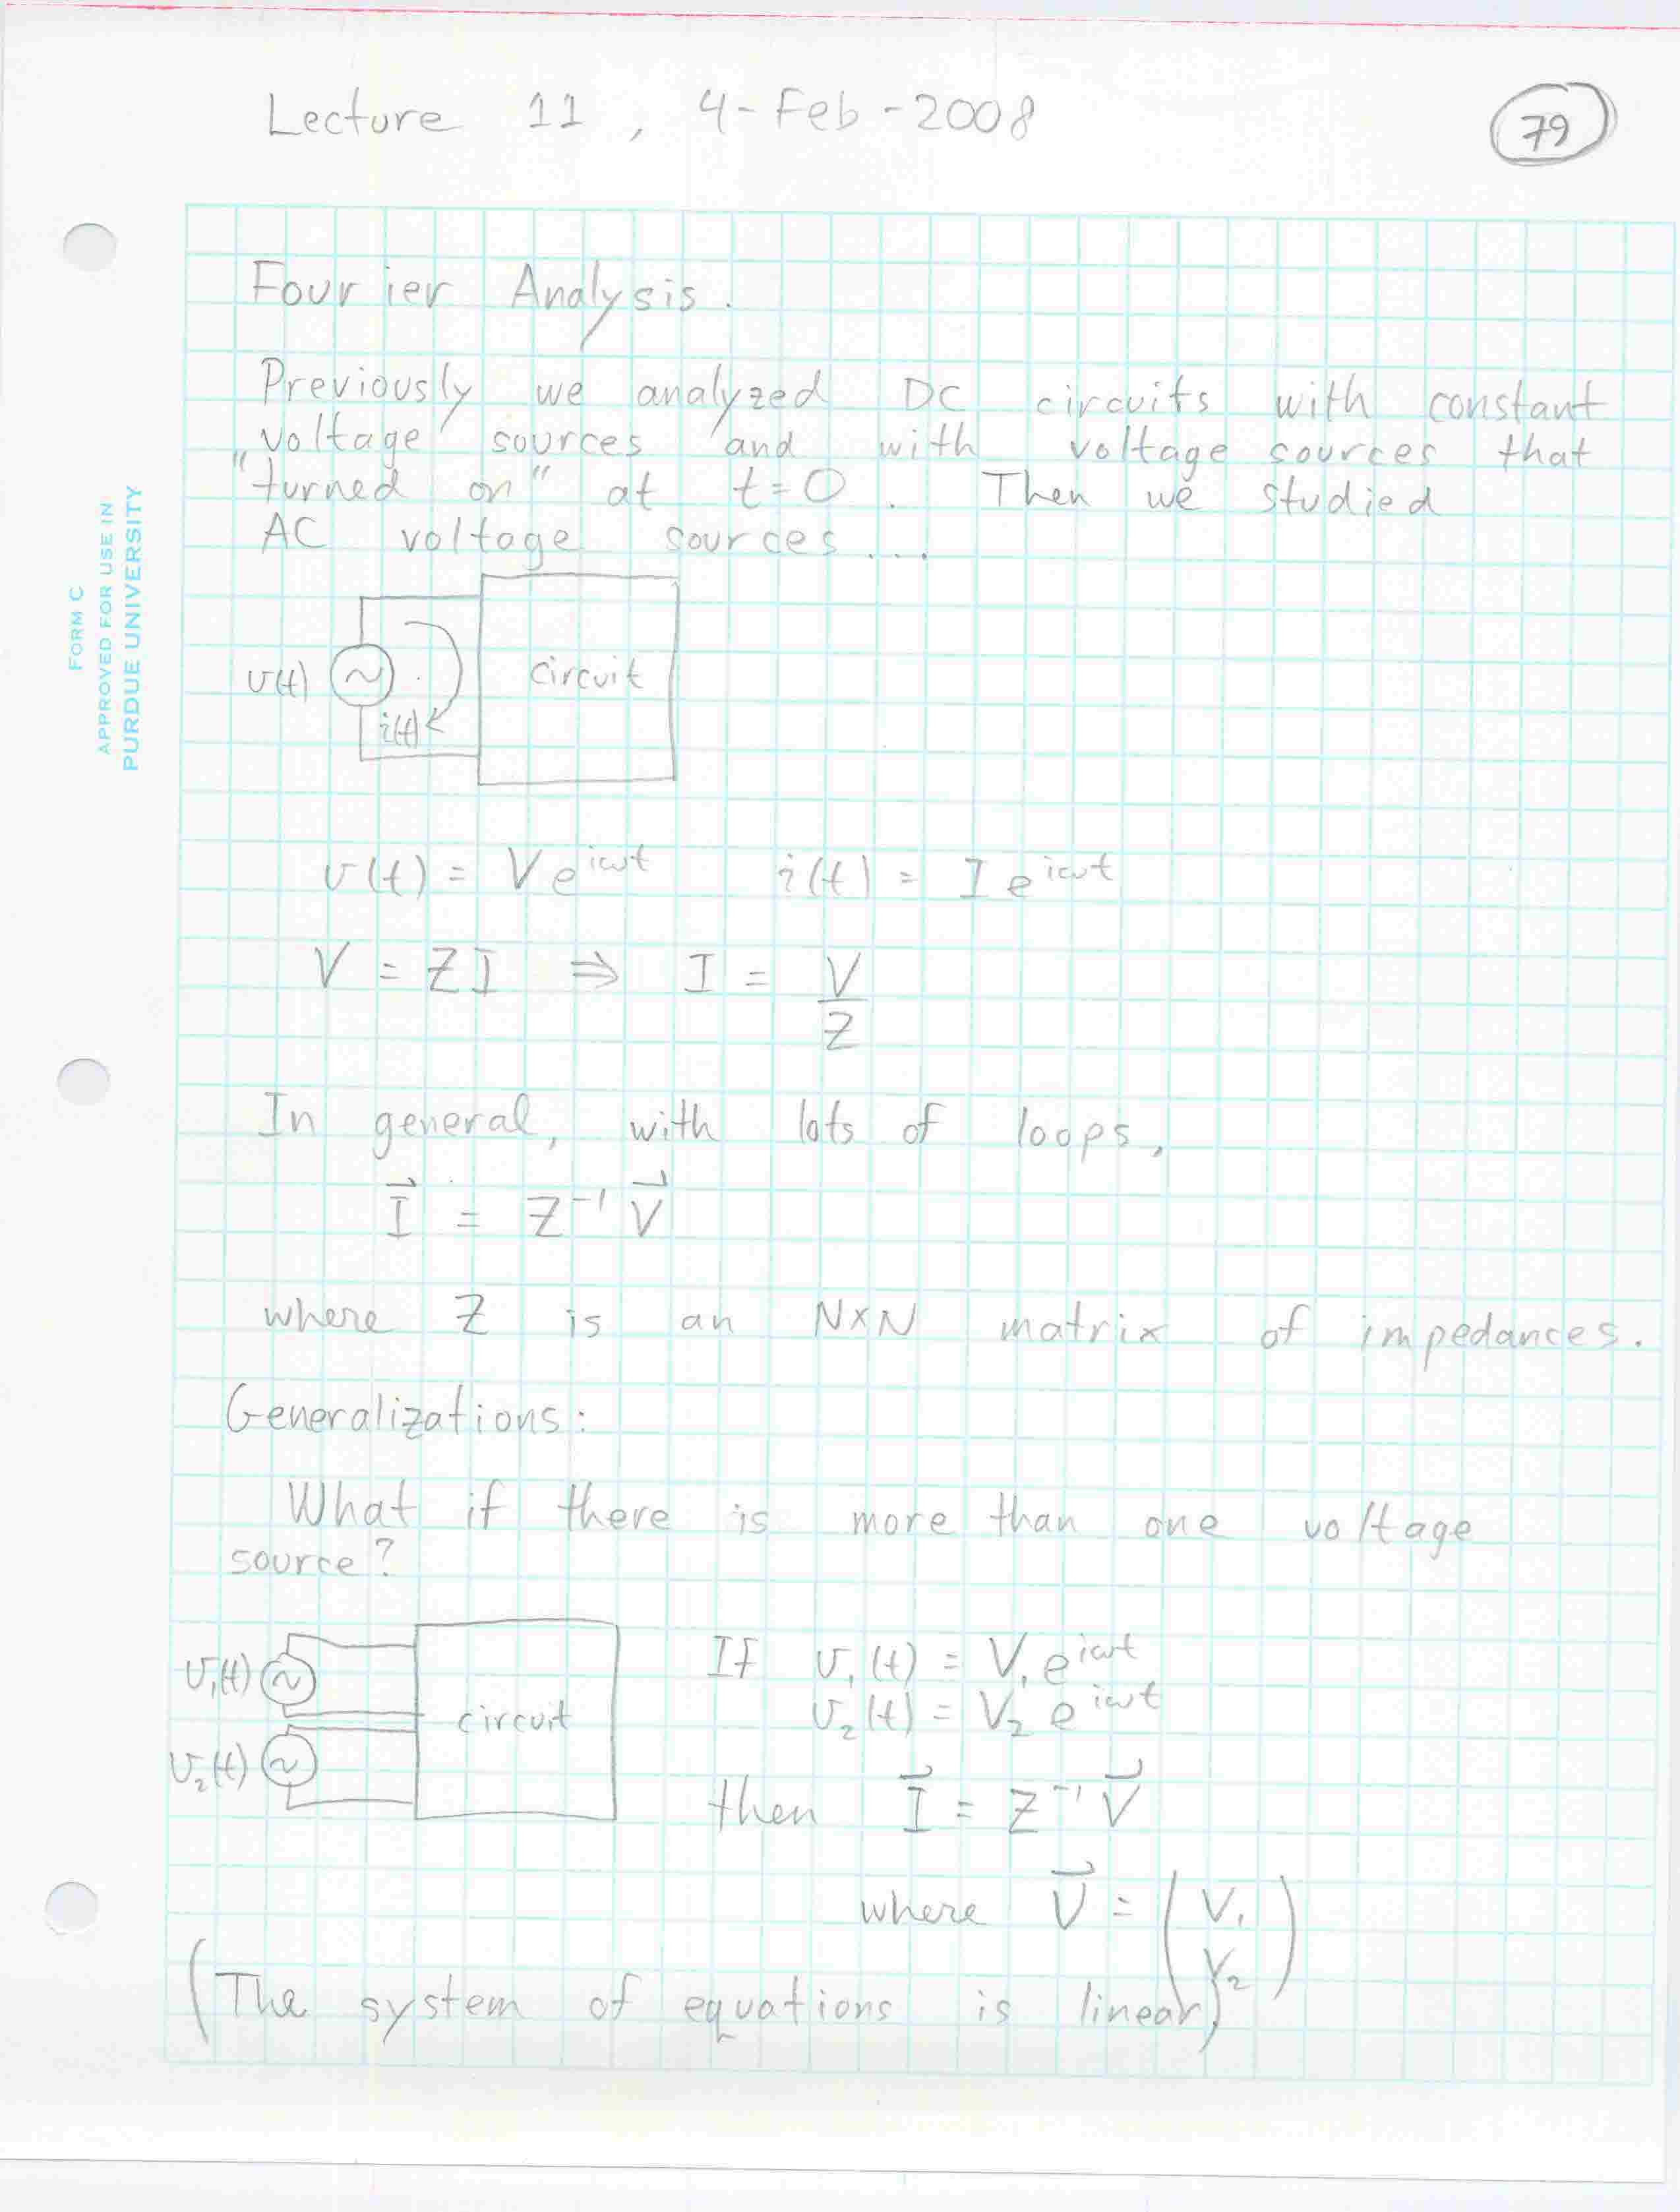 Lecture 11, 4-Feb-2008
79
FORM C
APPROVED FOR USE IN
PURDUE UNIVERSITY
Fourier Analysis.
Previously we analyzed DC circuits with constant
voltage sources and with voltage sources that
"turned on" at t=0. Then we studied
AC voltage sources....
v(t)
i(t)
circuit
v(t) = V e^{iωt}   i(t) = I e^{iωt}
V = ZI ⇒ I = V/Z
In general, with lots of loops,
\vec{I} = Z^{-1} \vec{V}
where Z is an N×N matrix of impedances.
Generalizations:
What if there is more than one voltage
source?
v₁(t)
v₂(t)
circuit
If v₁(t) = V₁ e^{iωt}
v₂(t) = V₂ e^{iωt}
then \vec{I} = Z^{-1} \vec{V}
where \vec{V} = (V₁
V₂)
(The system of equations is linear)